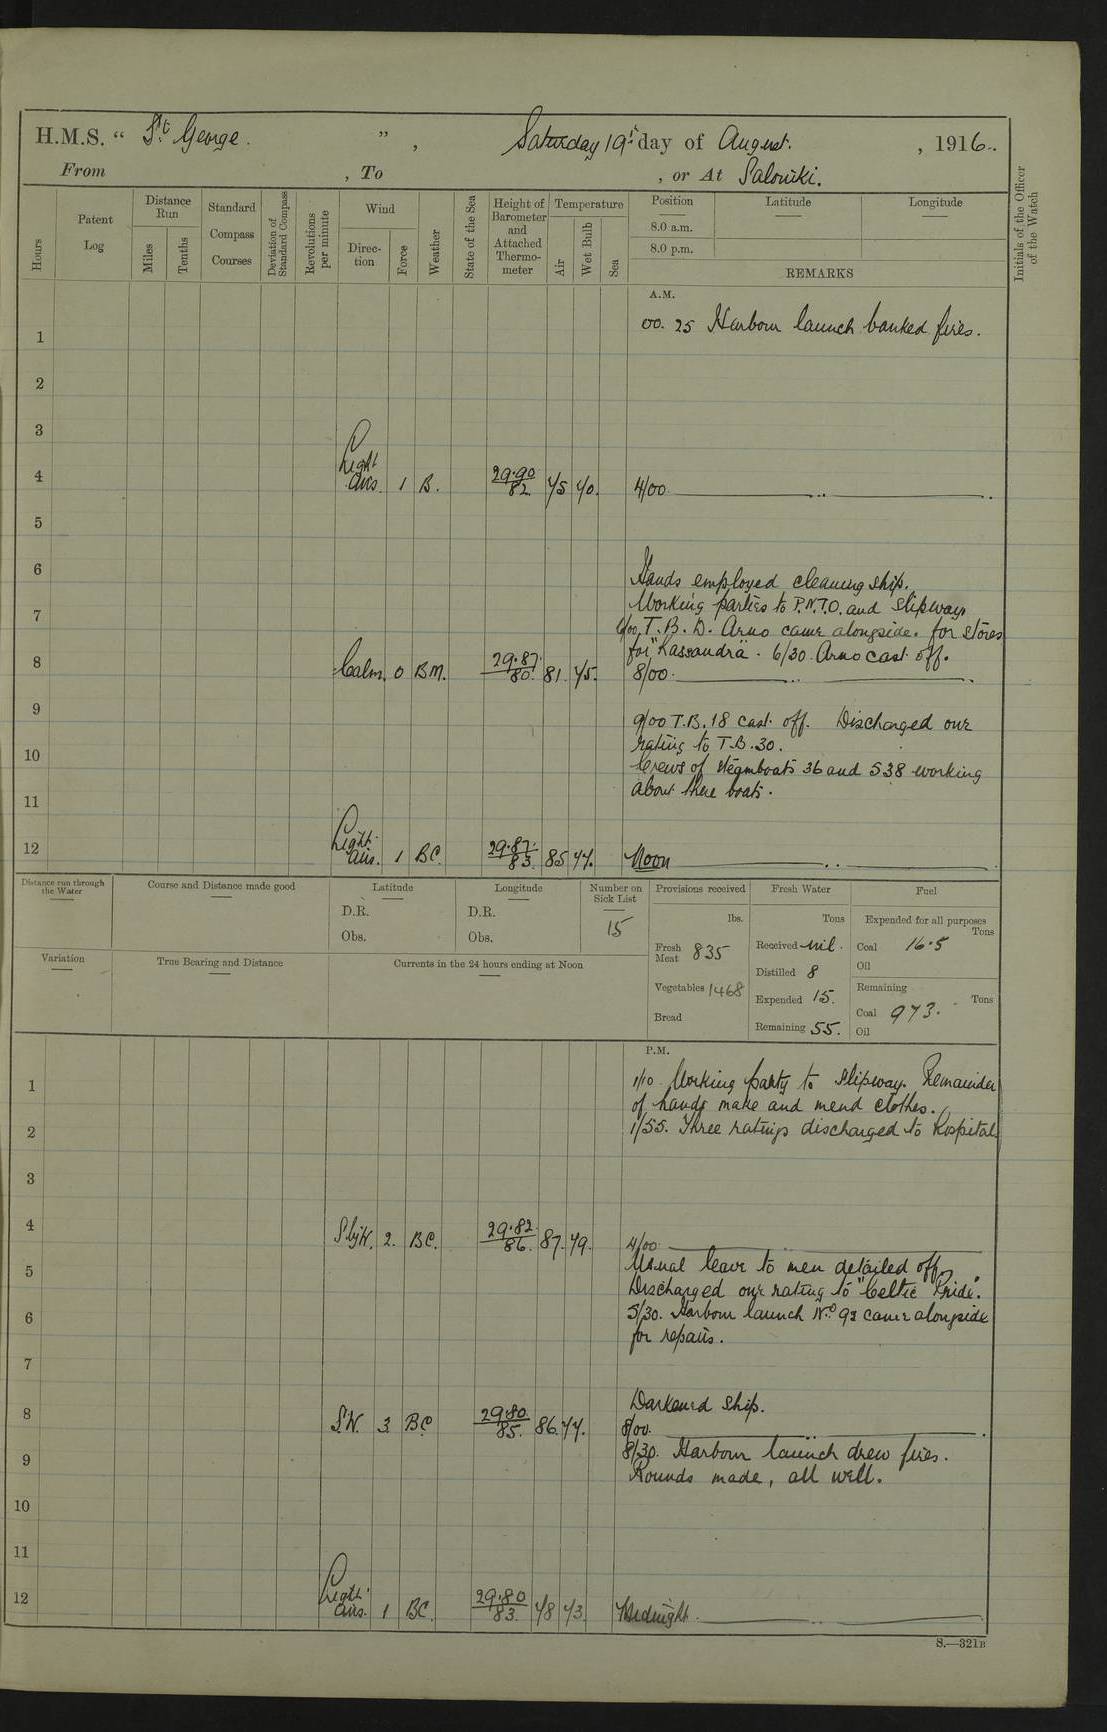 H.M.S. " St George. ", Saturday 19th day of August. , 1916.
From , To , or At Salonika.
Hours
Patent Log
Distance Run
Miles
Tenths
Standard Compass Courses
Deviation of Standard Compass
Revolutions per minute
Wind
Direction
Force
Weather
State of the Sea
Height of Barometer and Attached Thermometer
Temperature
Air
Wet Bulb
Sea
Position
8.0 a.m.
8.0 p.m.
Latitude
Longitude
REMARKS
Initials of the Officer of the Watch
A.M.
1 00. 25 Harbour launch banked fires.
2
3
4 Light airs. 1 B. 29.90/82 75 70. 4/00
5
6 Hands employed cleaning ship.
Working parties to P.N.T.O. and slipways
7 T.B.D. Arno came alongside. for stores
for "Kassandra". 6/30 Arno cast off.
8 Calm. 0 BM. 29.87/80. 81. 75. 8/00.
9 9/00 T.B. 18 cast off. Discharged one
rating to T.B. 30.
10 Crews of steamboats 36 and 538 working
about there boats.
11
12 Light airs. 1 BC. 29.87/83. 85 77. Noon
Distance run through the Water
Course and Distance made good
Latitude
D.R.
Obs.
Longitude
D.R.
Obs.
Number on Sick List
15
Provisions received
lbs.
Fresh Meat 835
Vegetables 1468
Bread
Fresh Water
Tons
Received nil.
Distilled 8
Expended 15.
Remaining 55.
Fuel
Expended for all purposes
Tons
Coal 16.5
Oil
Remaining
Tons
Coal 973.
Oil
Variation
True Bearing and Distance
Currents in the 24 hours ending at Noon
P.M.
1 1/10 Working party to slipway. Remainder
of hands make and mend clothes.
2 1/55. Three ratings discharged to hospital
3
4 SbyW. 2. BC. 29.82/86. 87. 79. 4/00
Usual leave to men detailed off.
5 Discharged one rating to "Celtic Pride".
6 5/30. Harbour launch No. 92 came alongside
for repairs.
7
Darkened ship.
8 S.W. 3 BC 29.80/85. 86. 77. 8/00.
8/30. Harbour launch drew fires.
9 Rounds made, all well.
10
11
12 Light airs. 1 BC. 29.80/83. 78 73. Midnight
S.—321B